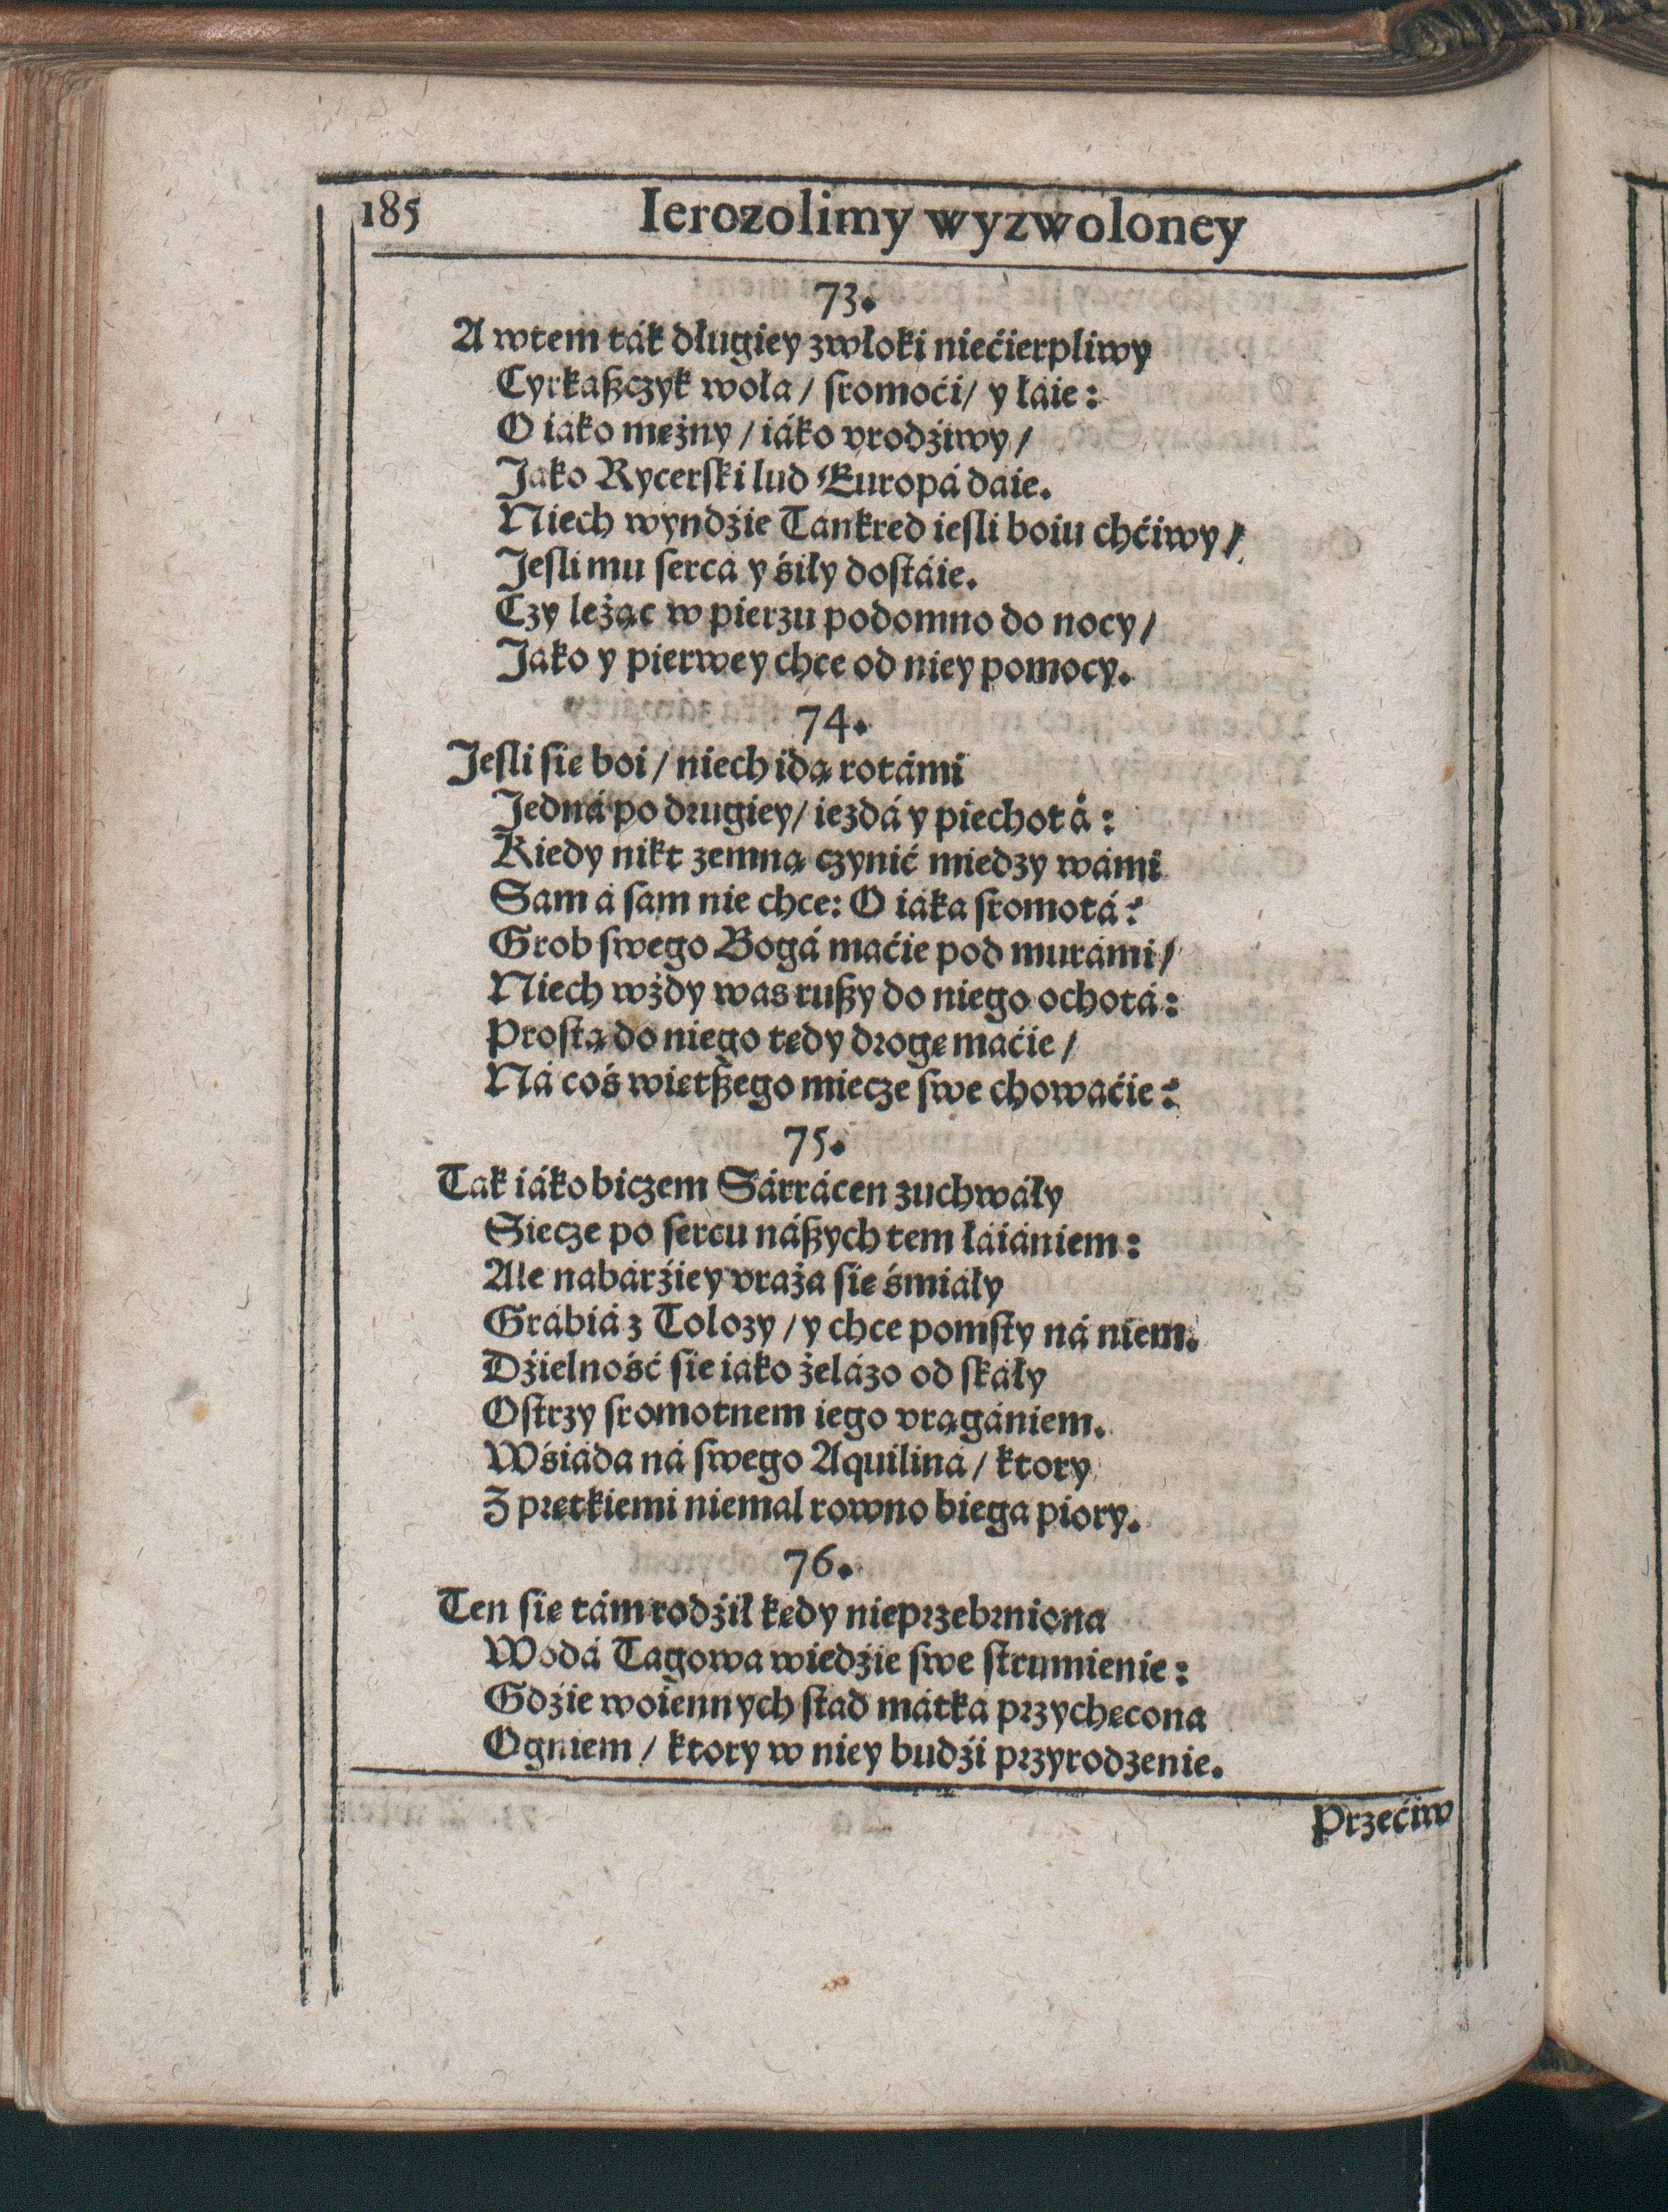 185 Ierozolimy wyzwoloney
73.
A wtem ták długiey zwłoki niećierpliwy
Cyrkaßczyk woła / ſromoći / y łáie:
O iáko mężny / iáko vrodźiwy /
Jáko Rycerſki lud Europá dáie.
Niech wyndźie Tankred ieſli boiu chćiwy /
Jeſli mu ſercá y śiły doſtáie.
Czy leżąc w pierzu podomno do nocy /
Jáko y pierwey chce od niey pomocy.
74.
Jeſli ſię boi / niech idą rotámi
Jedná po drugiey / iezdá y piechotá:
Kiedy nikt zemną czynić miedzy wámi
Sam á ſam nie chce: O iáka ſromotá:
Grob ſwego Bogá maćie pod murámi /
Niech wżdy was rußy do niego ochotá:
Proſtą do niego tędy drogę maćie /
Ná coś więtßego miecze ſwe chowaćie:
75.
Tak iáko biczem Sárrácen zuchwáły
Siecze po ſercu náßych tem łáiániem:
Ale nabárźiey vraża ſię śmiáły
Grábiá z Tolozy / y chce pomſty ná niem.
Dźielność ſie iáko żelázo od ſkáły
Oſtrzy ſromotnem iego vrągániem.
Wśiáda ná ſwego Aquiliná / ktory
Z prętkiemi niemal rowno biega piory.
76.
Ten ſię tám rodźił kędy nieprzebrniona
Wodá Tagowa wiedźie ſwe ſtrumienie:
Gdźie woiennych ſtad mátká przychęcona
Ogniem / ktory w niey budźi przyrodzenie.
Przećiw